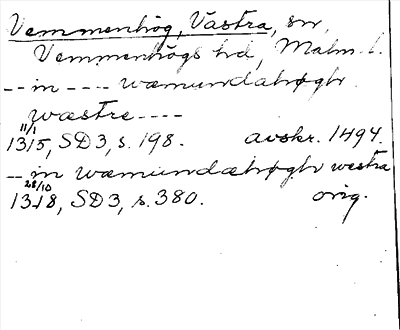 Vemmenhög, Västra, sn,
Vemmenhögs hd, Malm. l.
-- in ---- wæmundahøghr
wæstre ----
11/1
1315, SD 3, s. 198. avskr. 1494.
-- in wæmundæhøghr westra
28/10
1318, SD 3, s. 380. orig.